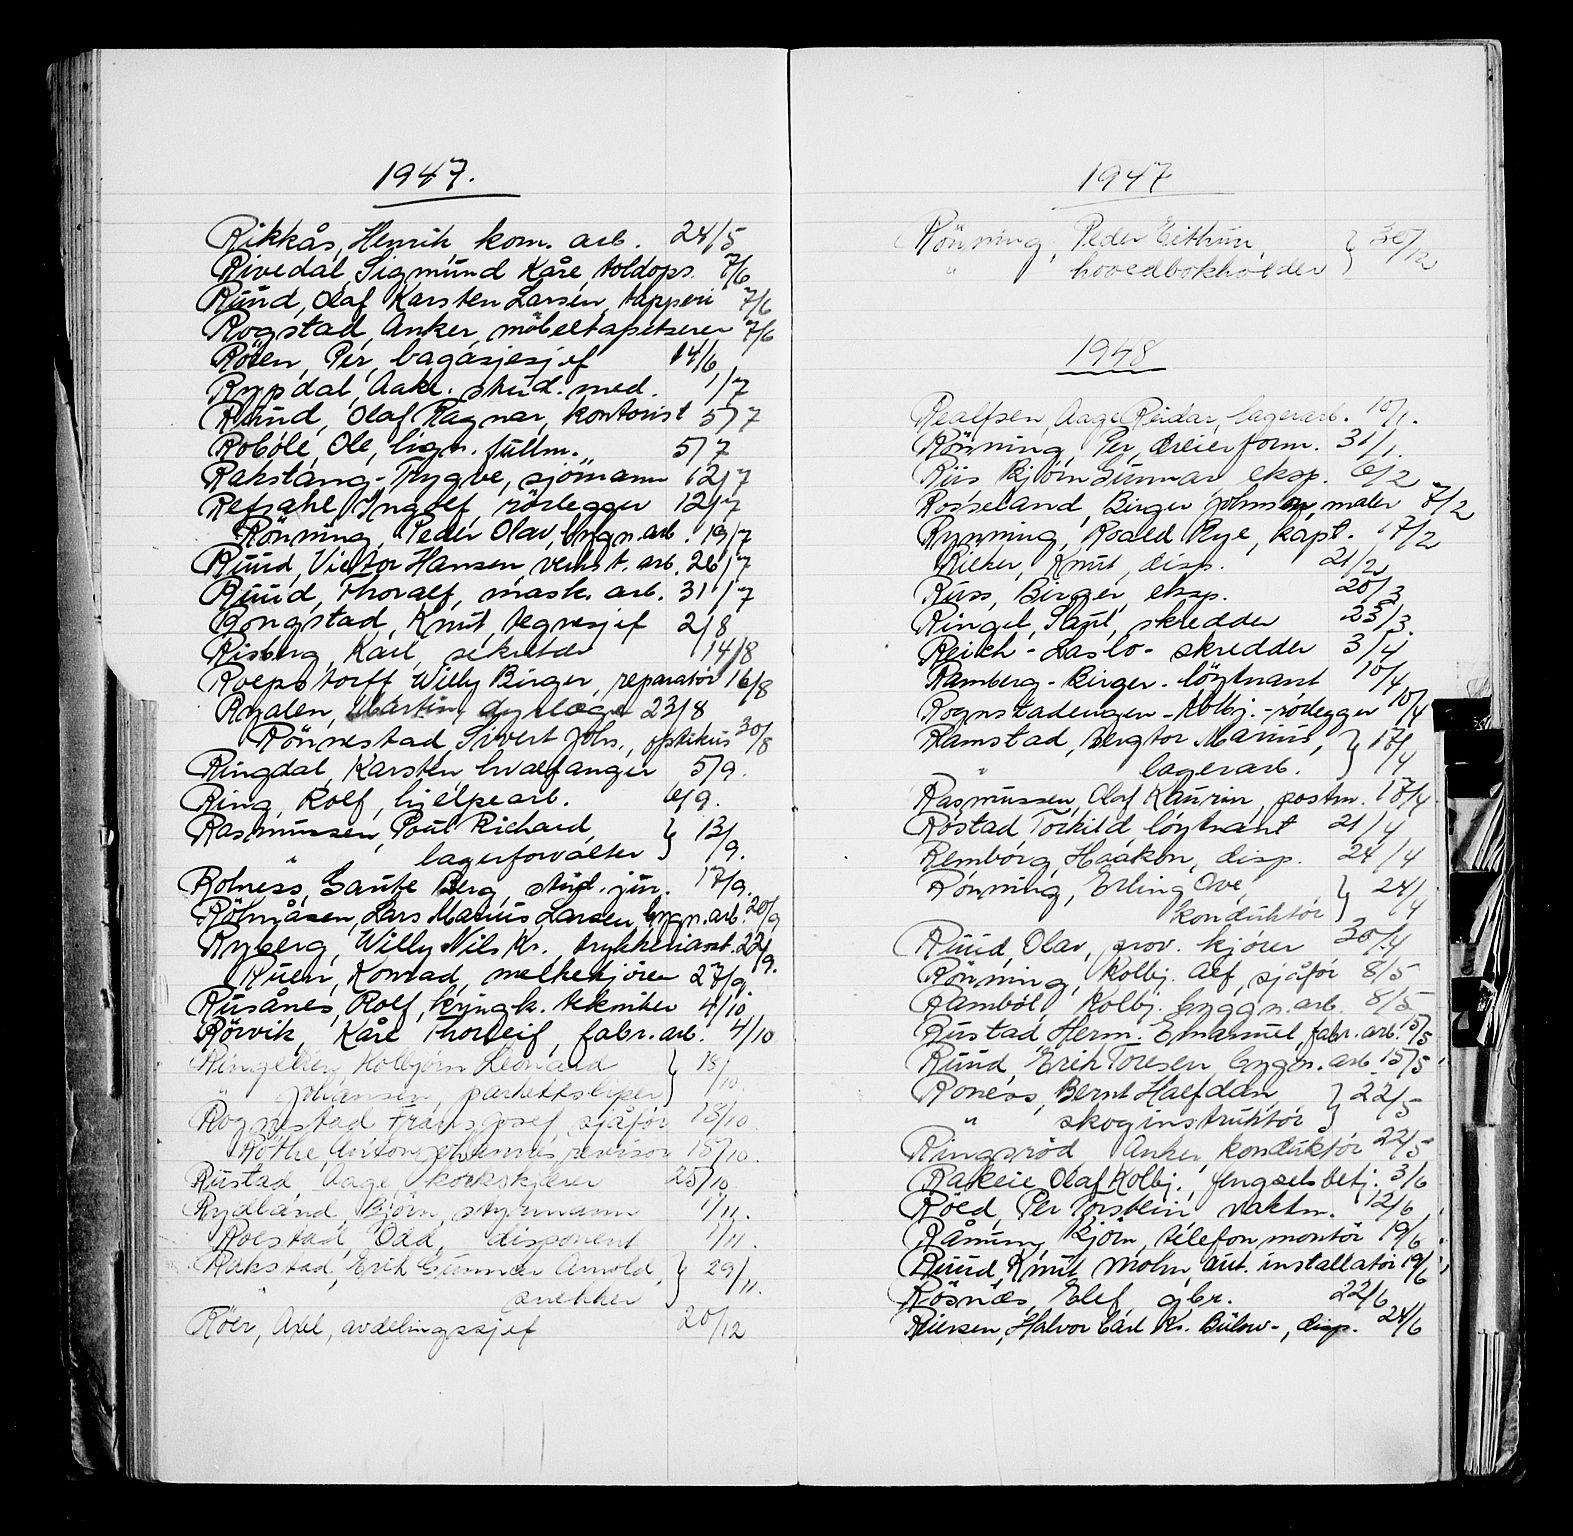 1947.
Rikkås, Henrik kom. arb. 24/5
Rivedal, Sigmund Kåre, toldops. 7/6
Ruud, Olaf Karsten Larsen, tapperi 7/6
Rogstad, Anker, möbeltapetserer 7/6
Röen, Per, bagasjesjef 14/6
Rypdal, stud. med. 1/7
Ruud, Olaf Ragnar, kontorist 5/7
Roböle, Ole, lign. fullm. 5/7
Rakstang - Trygve, sjömann 12/7
Refsahl, Ingolf, rörlegger 12/7
Rönning, Peder Olav, bygn. arb. 19/7
Ruud, Victor Hansen, verkst. arb. 26/7
Ruud, Thoralf, mask. arb. 31/7
Rongstad, Knut, tegnesjef 2/8
Risberg, Karl, sekretær 14/8
Roepstorff, Willy Birger, reparatör 16/8
Rydlen, Martin, dyrlæge 23/8
Rönnestad, Sivert Johs., optikus 30/8
Ringdal, Karsten, hvalfanger 5/9.
Ring, Rolf, hjelpearb. 6/9.
Rasmussen, Poul Richard, } 13/9.
" lagerforvalter
Rolness, Gaute Berg, stud. jur. 17/9.
Rötmåsen, Lars Marius Larsen, bygn. arb. 20/9
Ryberg, Willy Nils Kr. trykkeriass. 22/9.
Konrad, melkekjörer 27/9
Rusånes, Rolf, kjngk. tekniker 4/10
Rörvik, Kåre Thorleif, fabr. arb. 4/10
Ringerey, Kolbjørn Leonard } 18/10.
" Johansen, parkettsliper
Rognestad Frans Josef sjåfør 18/10.
Röthe, Anton Johannes, revisor 18/10.
Rustad Aage, korkskjærer 25/10
Rydland, Björn, styrmann 1/11.
Roestad, Odd, disponent 1/11.
Rakstad, Erik Gunnar Arnold, } 29/11.
" snekker
Röer, Axel, avdelingssjef 20/12
1947
Rönning, Peder Eithun, } 30/12
" hovedbokholder
1948
Realfsen, Aage Reidar, lagerarb. 10/1.
Rönning, Per, dreierform. 31/1.
Riis Bjørn Gunnar eksp. 6/2
Rosseland, Birger Johnson, maler 7/2
Rynning, Roald Rye, kapt. 17/2
Rieker, Knut, disp. 21/2
Russ, Birger, eksp. 20/3
Ringel, Saul, skredder 23/3.
Reich - Laslo - skredder 3/4
Ramberg - Birger - löytnant 10/4
Rognstadengen - Kolbj. - rörlegger 10/4
Ramstad, Bergtor Marius, } 17/4
" lagerarb.
Rasmussen, Olaf Kaurin, postm. 17/4
Rostad, Torkild löytnant 21/4
Remborg, Haakon, disp. 24/4
Rönning, Erling Ove, } 24/4
konduktör
Ruud, Olav, prov. kjörer 30/4
Rönning, Kolbj. Alf, sjåför 8/5
Ramböl Kolbj. byggn. arb. 8/5
Rustad Herm. Emanuel, fabr. arb. 15/5
Ruud, Erik Toresen bygn. arb. 15/5
Roness, Bernt Halfdan } 22/5
" skoginstruktör
Ringsröd Anker konduktör 22/5
Rakeie, Olaf Kolbj. fengselsbetj. 3/6
Röed, Per Torstein vaktm. 12/6
Rånum, Björn, telefonmontör 19/6
Ruud, Knut Molin, aut. installatör 19/6
Rösnæs, Elef gbr. 22/6
Riersen, Halvor Carl Kr. Bülow-, disp. 24/6